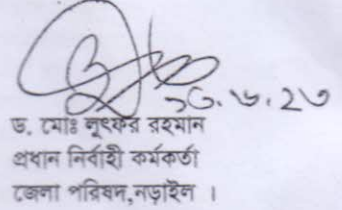 ড. মোঃ লুৎফর রহমান
প্রধান নির্বাহী কর্মকর্তা
জেলা পরিষদ,নড়াইল ।